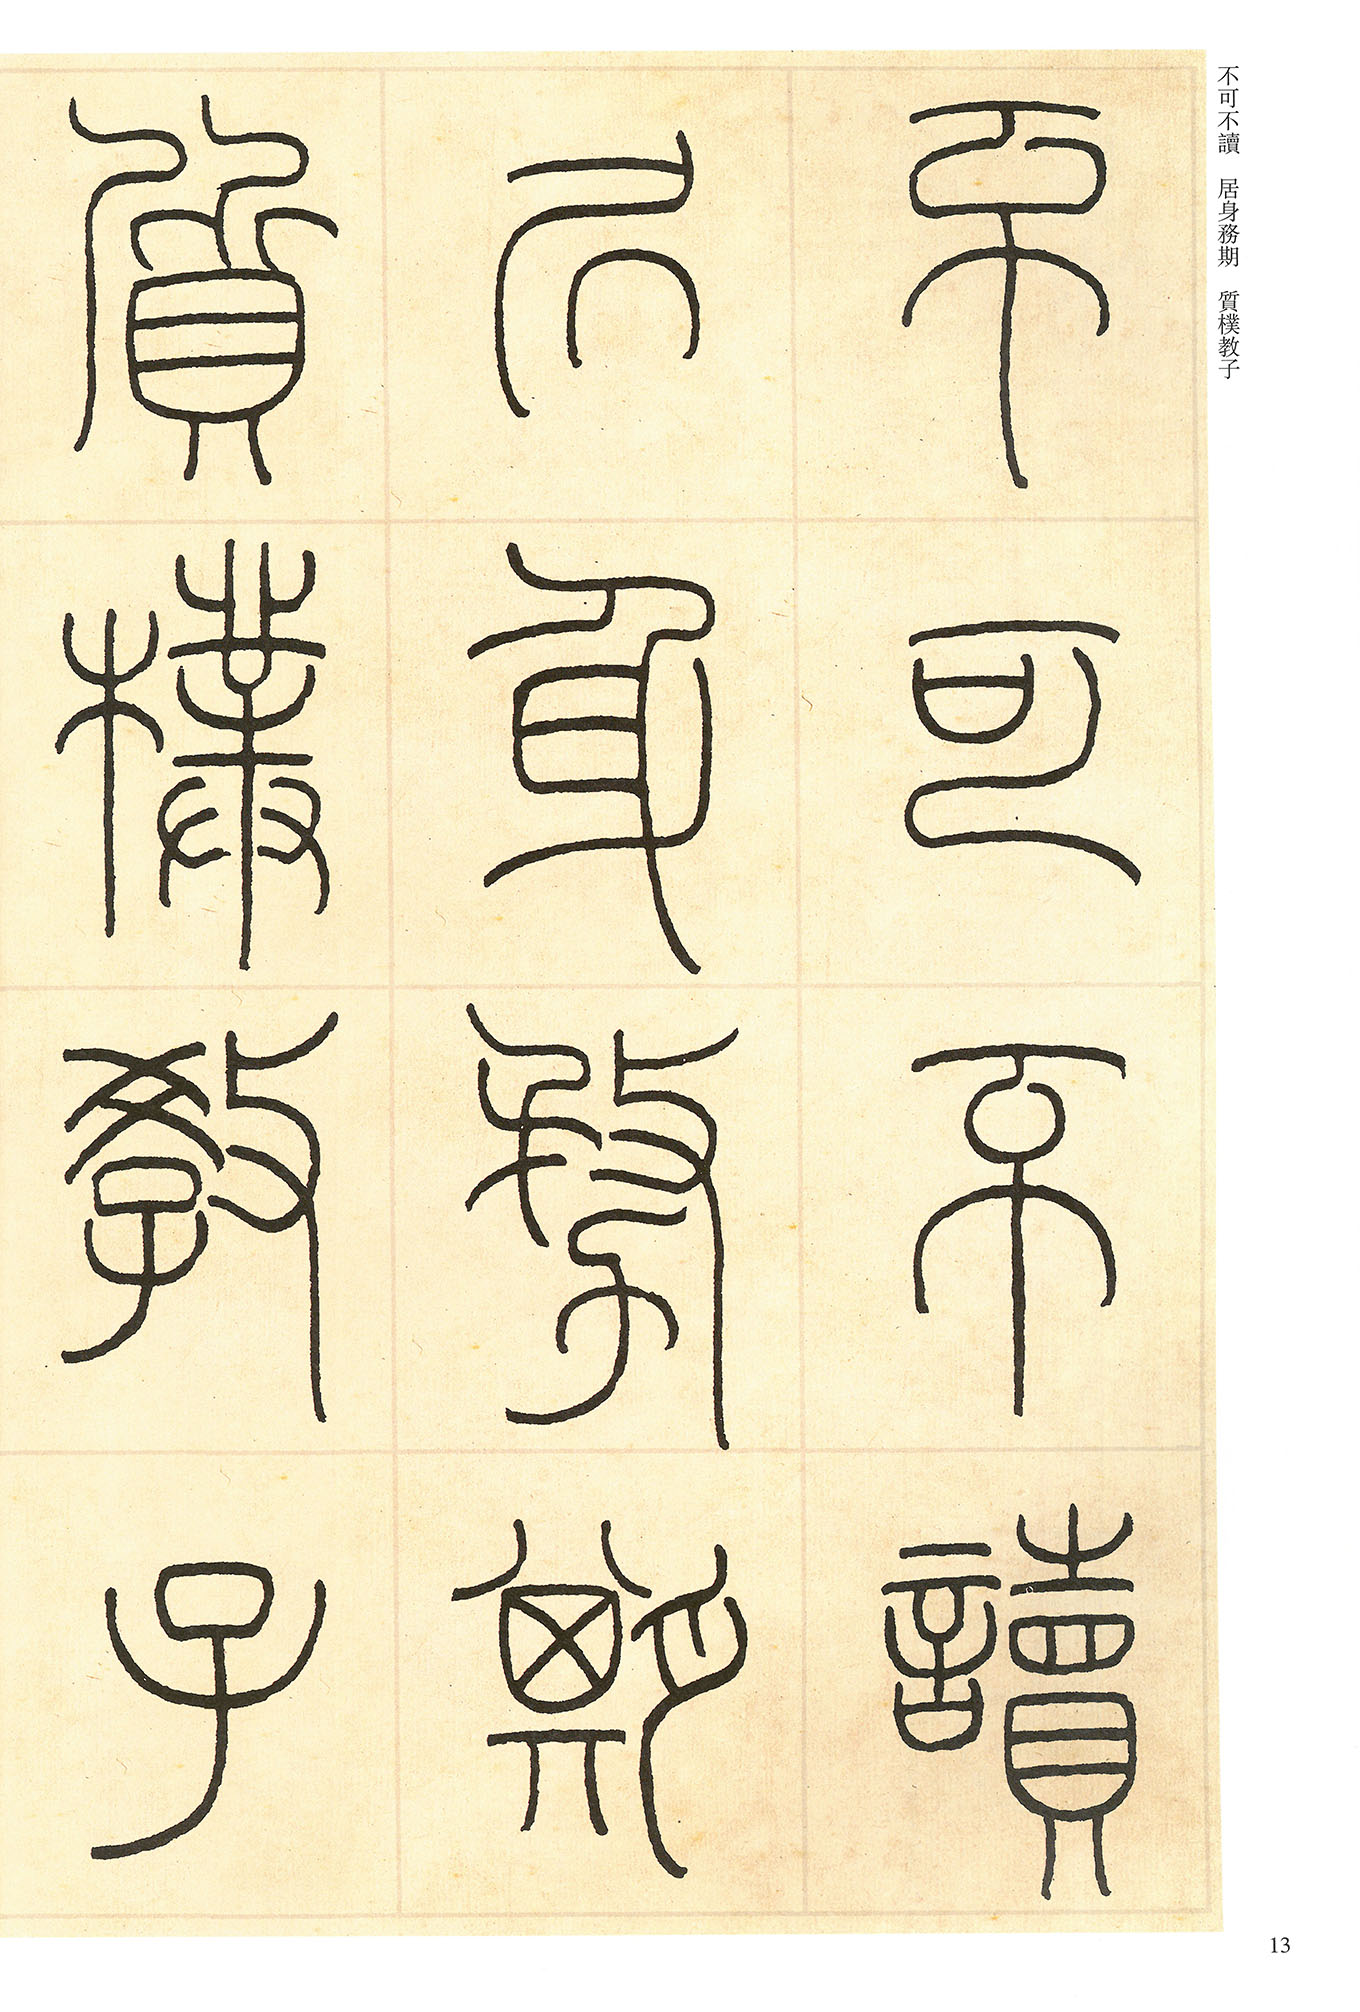 不可不讀 居身務期 質樸教子
不可不讀
凥身務期
質樸教子
13